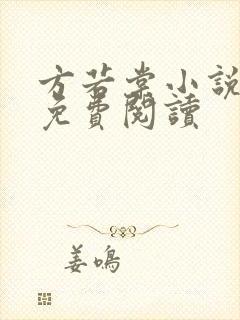 方若棠小說
免費閱讀
姜鳴